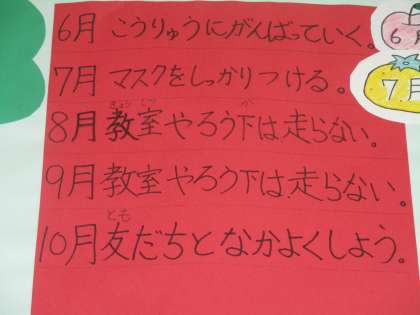 6月 こうりゅうにがんばっていく。
7月 マスクをしっかりつける。
きょう しつ か
8月 教室やろう下は走らない。
9月 教室やろう下は、走らない。
とも
10月 友だちとなかよくしよう。
6月
7月